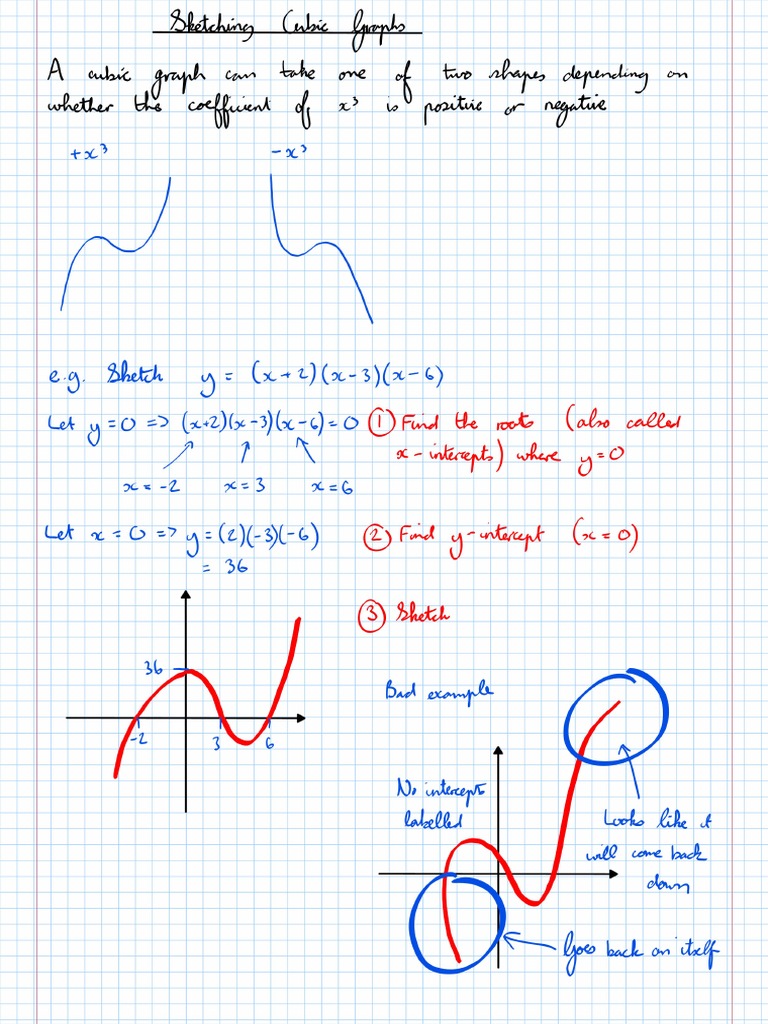 Sketching Cubic Graphs
A cubic graph can take one of two shapes depending on
whether the coefficient of x³ is positive or negative
+x³
-x³
e.g. Sketch y = (x+2)(x-3)(x-6)
Let y=0 => (x+2)(x-3)(x-6)=0
① Find the roots (also called
x-intercepts) where y=0
x=-2 x=3 x=6
Let x=0 => y=(2)(-3)(-6)
= 36
② Find y-intercept (x=0)
③ Sketch
36
-2 3 6
Bad example
No intercepts
labelled
Looks like it
will come back
down
Goes back on itself